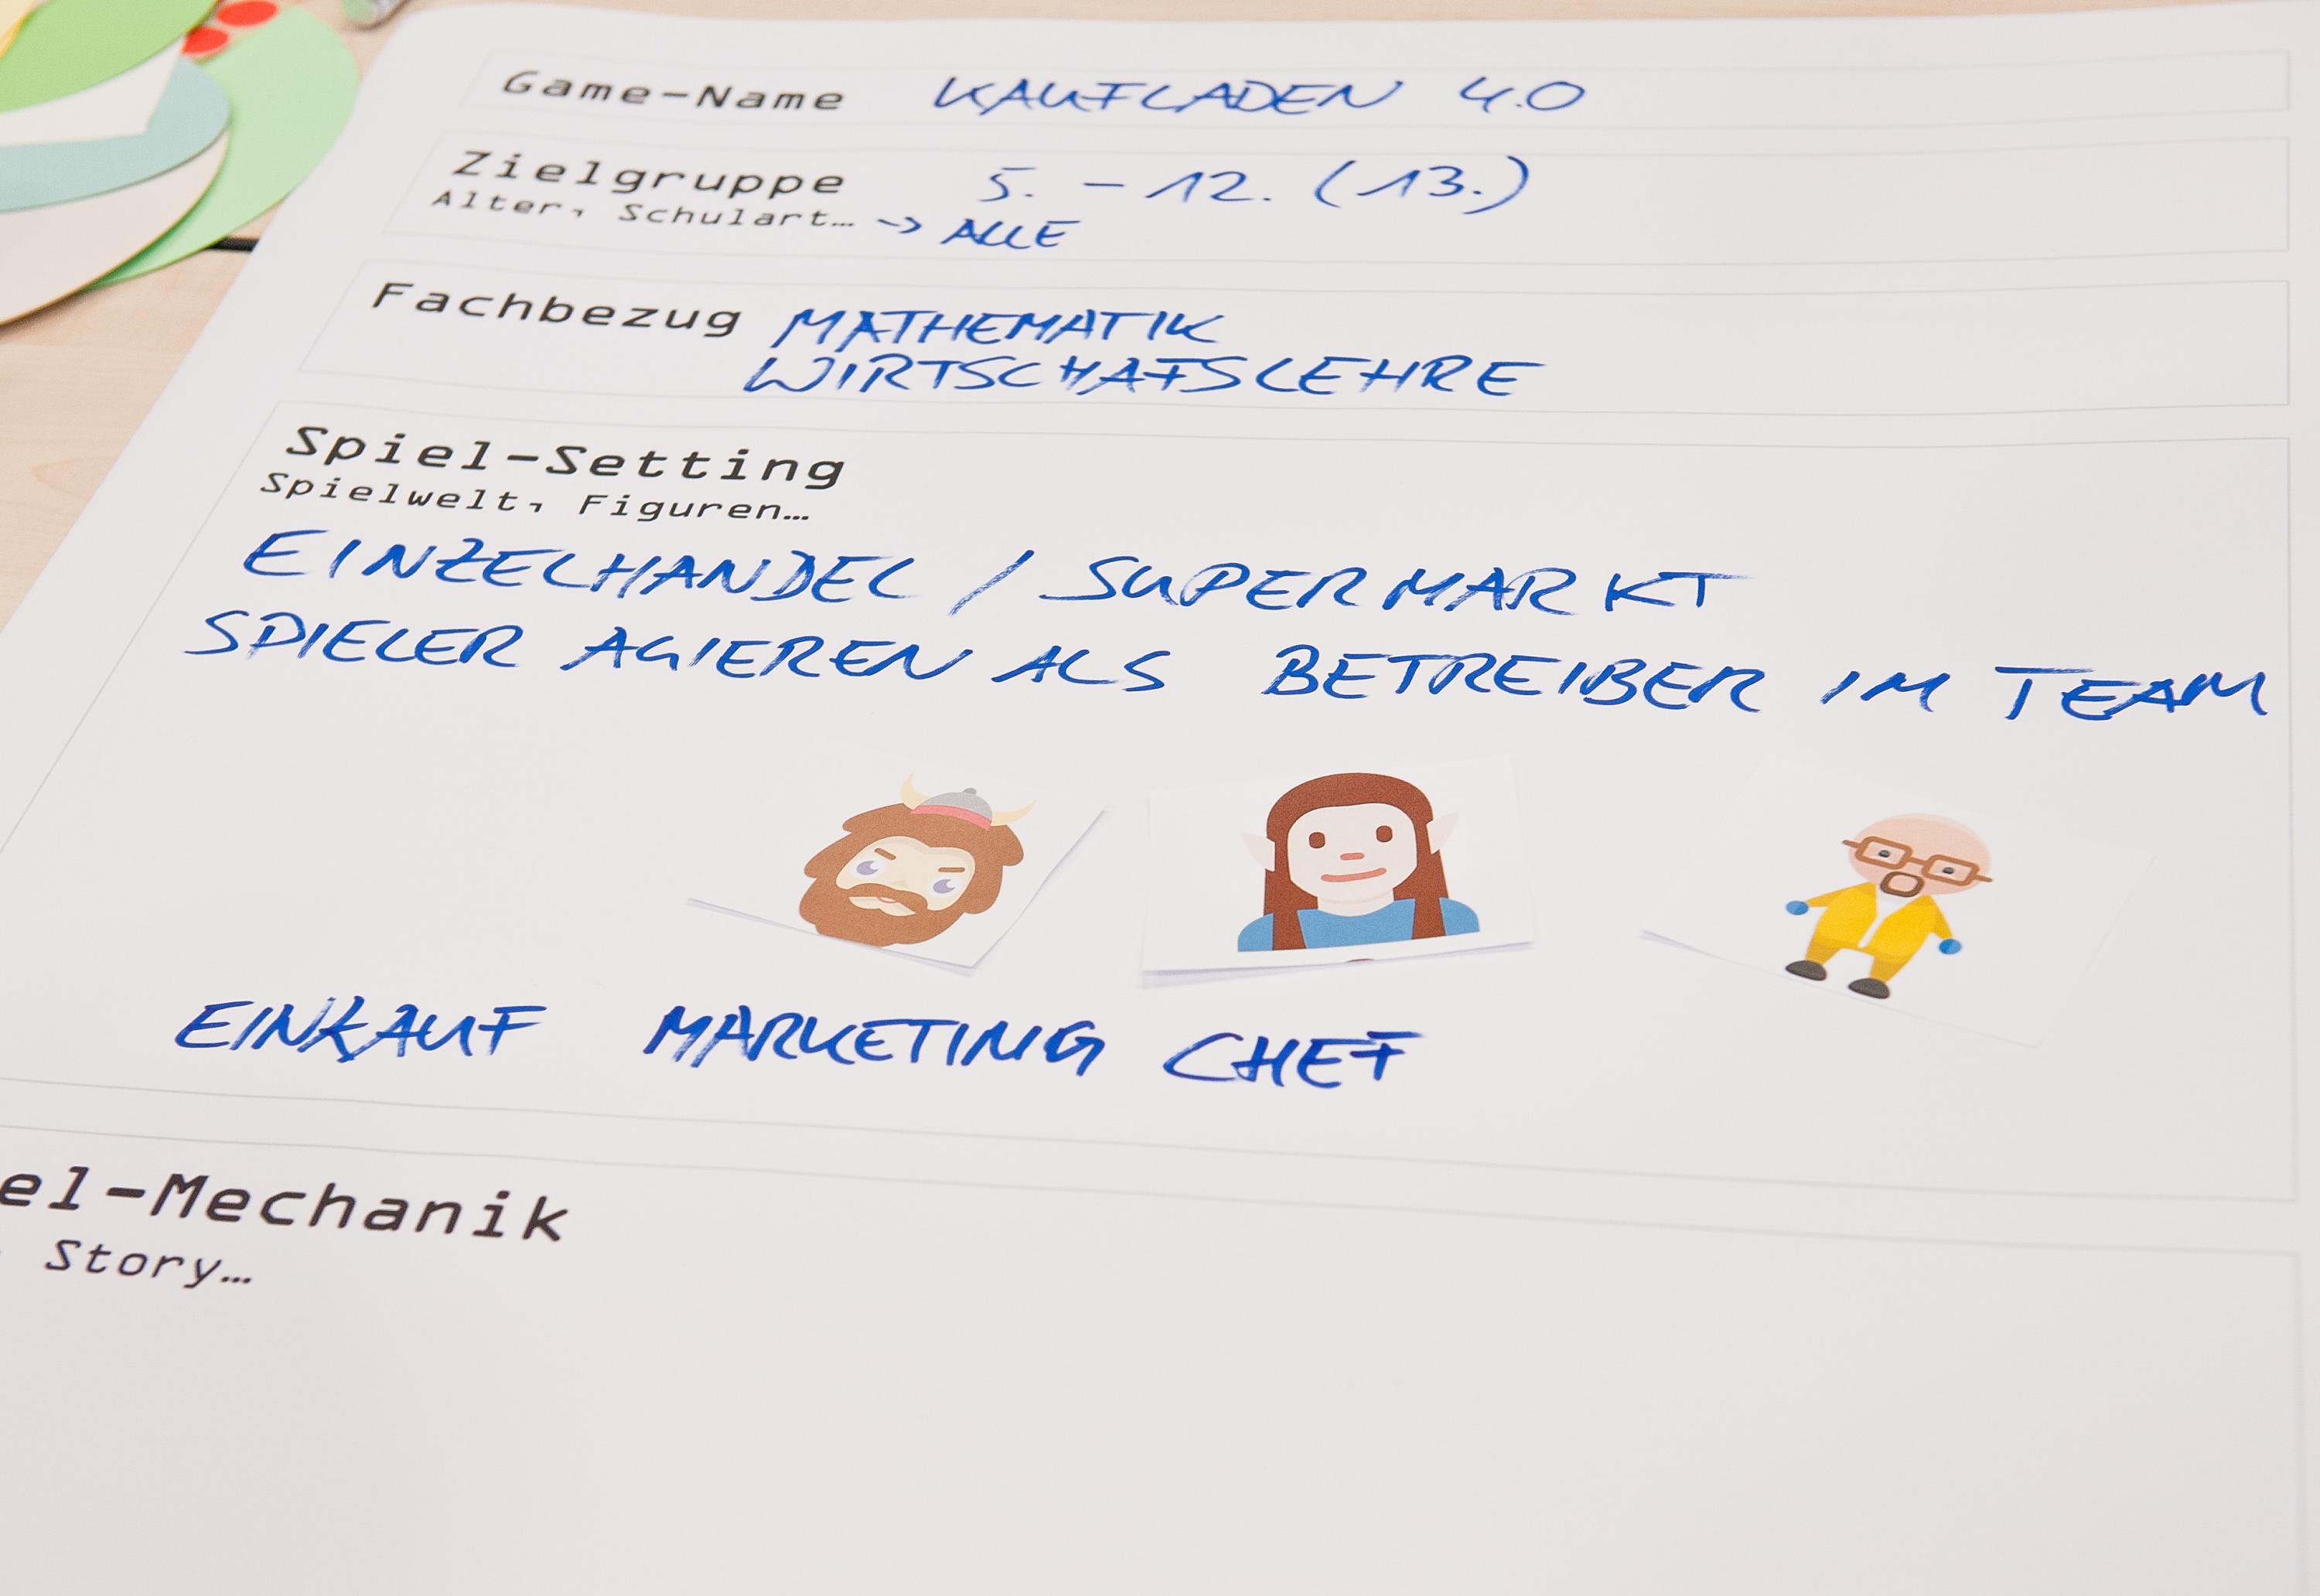 Game-Name KAUFLADEN 4.0
Zielgruppe 5. - 12. (13.)
Alter, Schulart… -> ALLE
Fachbezug MATHEMATIK
WIRTSCHAFSLEHRE
Spiel-Setting
Spielwelt, Figuren…
EINZELHANDEL / SUPERMARKT
SPIELER AGIEREN ALS BETREIBER IM TEAM
EINKAUF MARKETING CHEF
el-Mechanik
, Story…